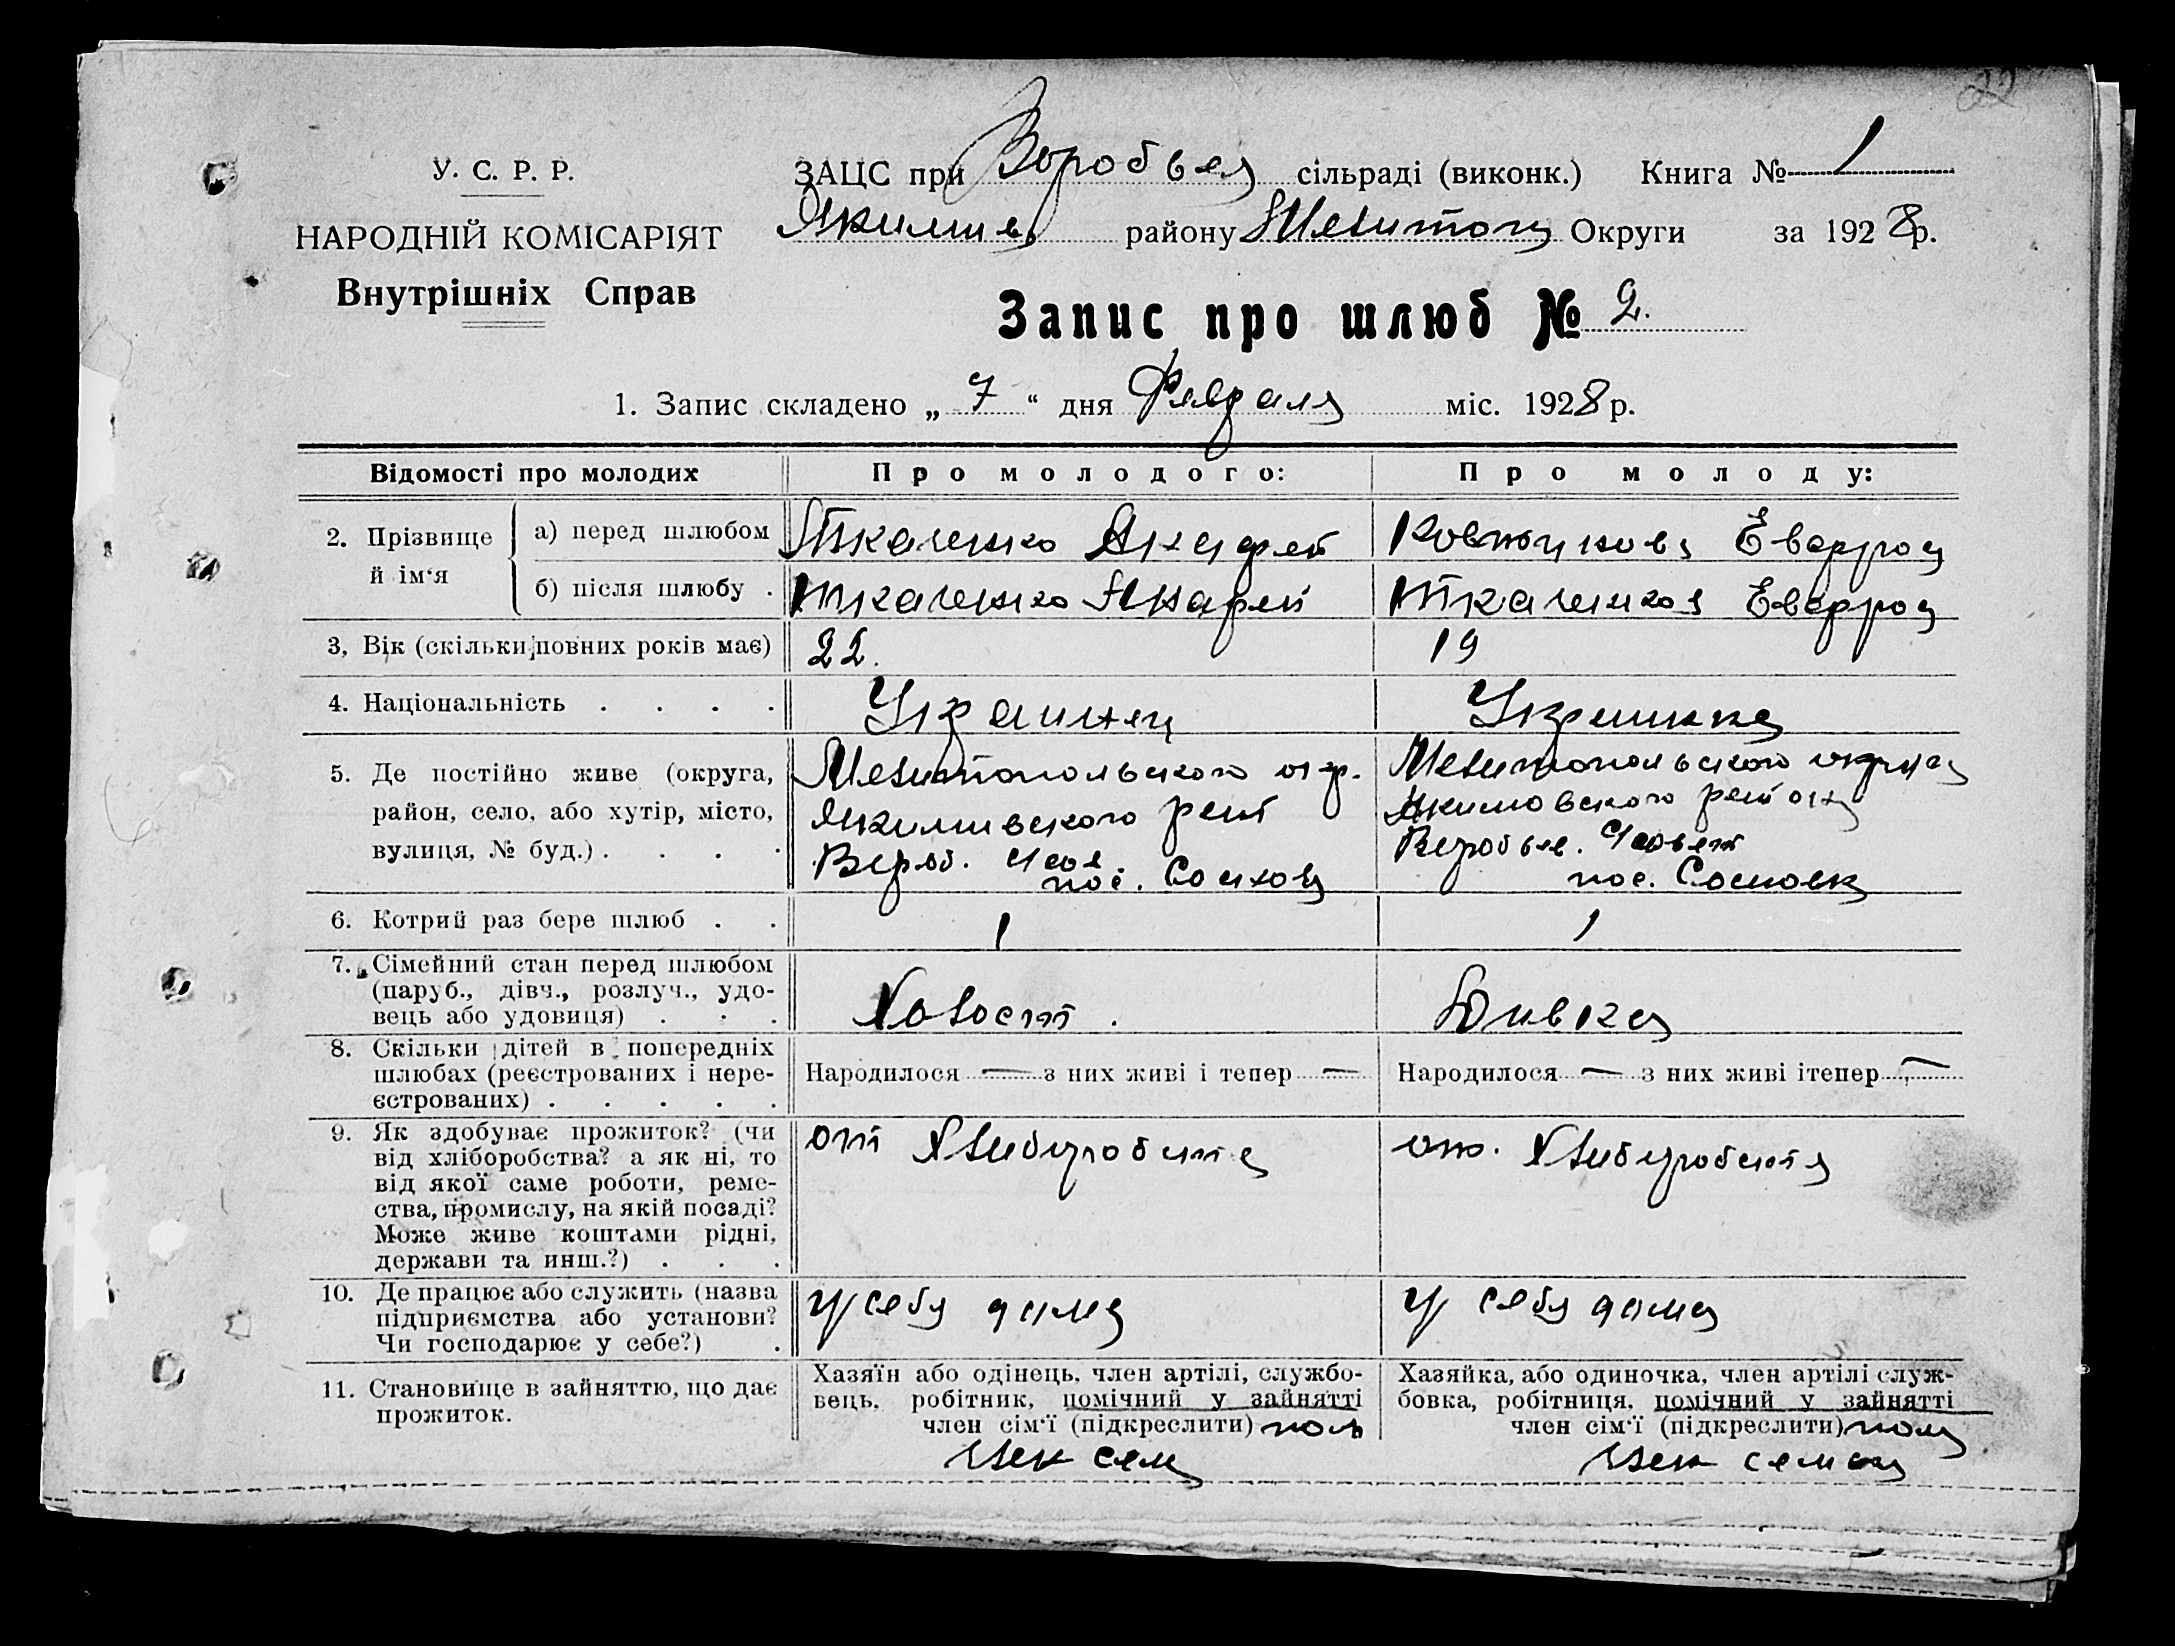 22
У. С. Р. Р.
НАРОДНІЙ КОМІСАРІЯТ
Внутрішніх Справ
ЗАЦС при Воробьев сільраді (виконк.) Книга № 1
Якимив району Мелитоп Округи за 1928 р.
Запис про шлюб № 2.
1. Запис складено „ 7 “ дня Февраля міс. 1928 р.
Відомості про молодих Про молодого: Про молоду:
2. Прізвище й ім‘я
а) перед шлюбом Ткаченко Ковтунова
б) після шлюбу . Ткаченко Ткаченкова
3, Вік (скільки повних років має) 22. 19
4. Національність . . . . Украинец Украинка
5. Де постійно живе (округа, район, село, або хутір, місто, вулиця, № буд.) . . . .
Мелитопольского окр.
Якимивского рей
пос.
Мелитопольского округа
Якимовского рейона
пос. Сосновк
6. Котрий раз бере шлюб . . 1 1
7. Сімейний стан перед шлюбом (паруб., дівч., розлуч., удовець або удовиця) . . . Холост . Дивка
8. Скільки дітей в попередніх шлюбах (реєстрованих і нереєстрованих) . . . . .
Народилося — з них живі і тепер — Народилося — з них живі ітепер —
9. Як здобуває прожиток? (чи від хліборобства? а як ні, то від якої саме роботи, ремества, промислу, на якій посаді? Може живе коштами рідні, держави та инш.?) . . .
от Хлиборобства от. Хлиборобства
10. Де працює або служить (назва підприємства або установи? Чи господарює у себе?) .
у себя дома у себя дома
11. Становище в зайняттю, що дає прожиток.
Хазяїн або одінець, член артілі, службовець, робітник, помічний у зайнятті член сім‘ї (підкреслити)
член сем
Хазяйка, або одиночка, член артілі службовка, робітниця, помічний у зайнятті член сім‘ї (підкреслити)
член семьи